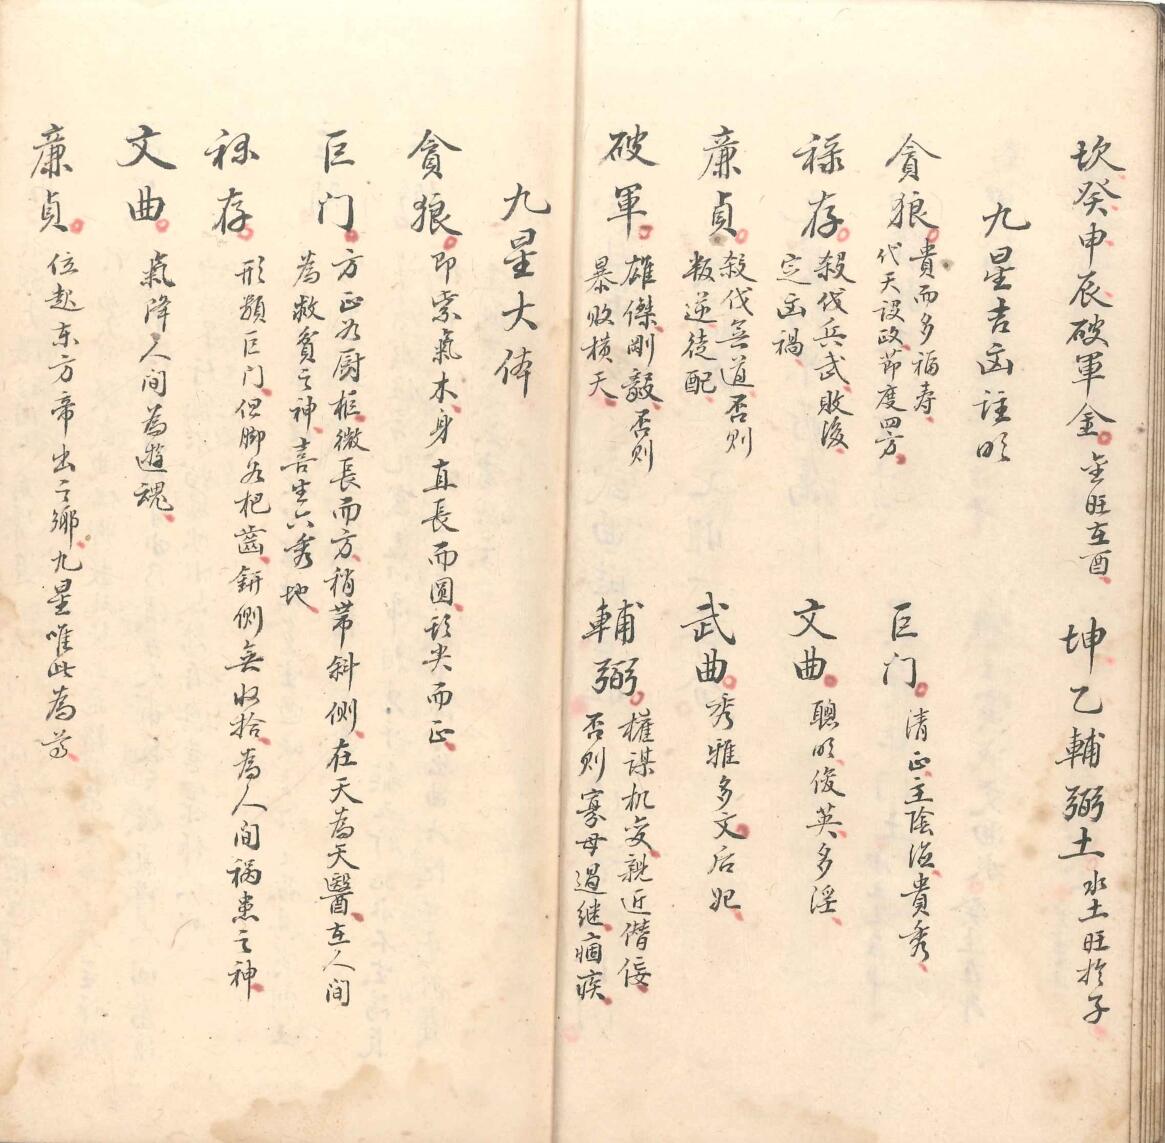 坎癸申辰破軍金 金旺在酉 坤乙輔弼土 水土旺於子
九星吉凶註明
貪狼 貴而多福寿
代天設政節度四方
巨门 清正主陰德貴秀
祿存 殺伐兵武敗後
定凶禍
文曲 聰明俊英多淫
廉貞 殺伐無道否则
叛逆徒配
武曲 秀雅多文后妃
破軍 雄傑剛毅否则
暴败横天
輔弼 權謀机变親近僭佞
否则寡母過继痼疾
九星大体
貪狼 即紫氣木身直長而圓頭尖而正
巨门 方正为厨柜微長而方稍带斜侧在天為天醫在人间
為救貧之神喜生六秀地
祿存 形類巨门但脚为杷齒鉼侧無收拾為人间祸患之神
文曲 氣降人间為遊魂
廉貞 位起东方帝出之鄉九星唯此為尊